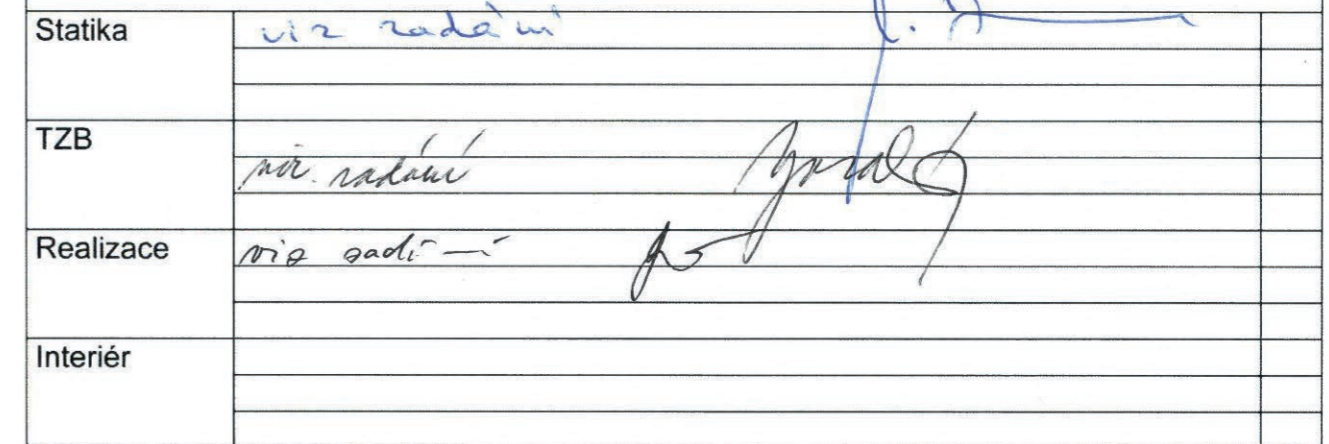 Statika viz zadání
TZB viz zadání
Realizace viz zadání
Interiér